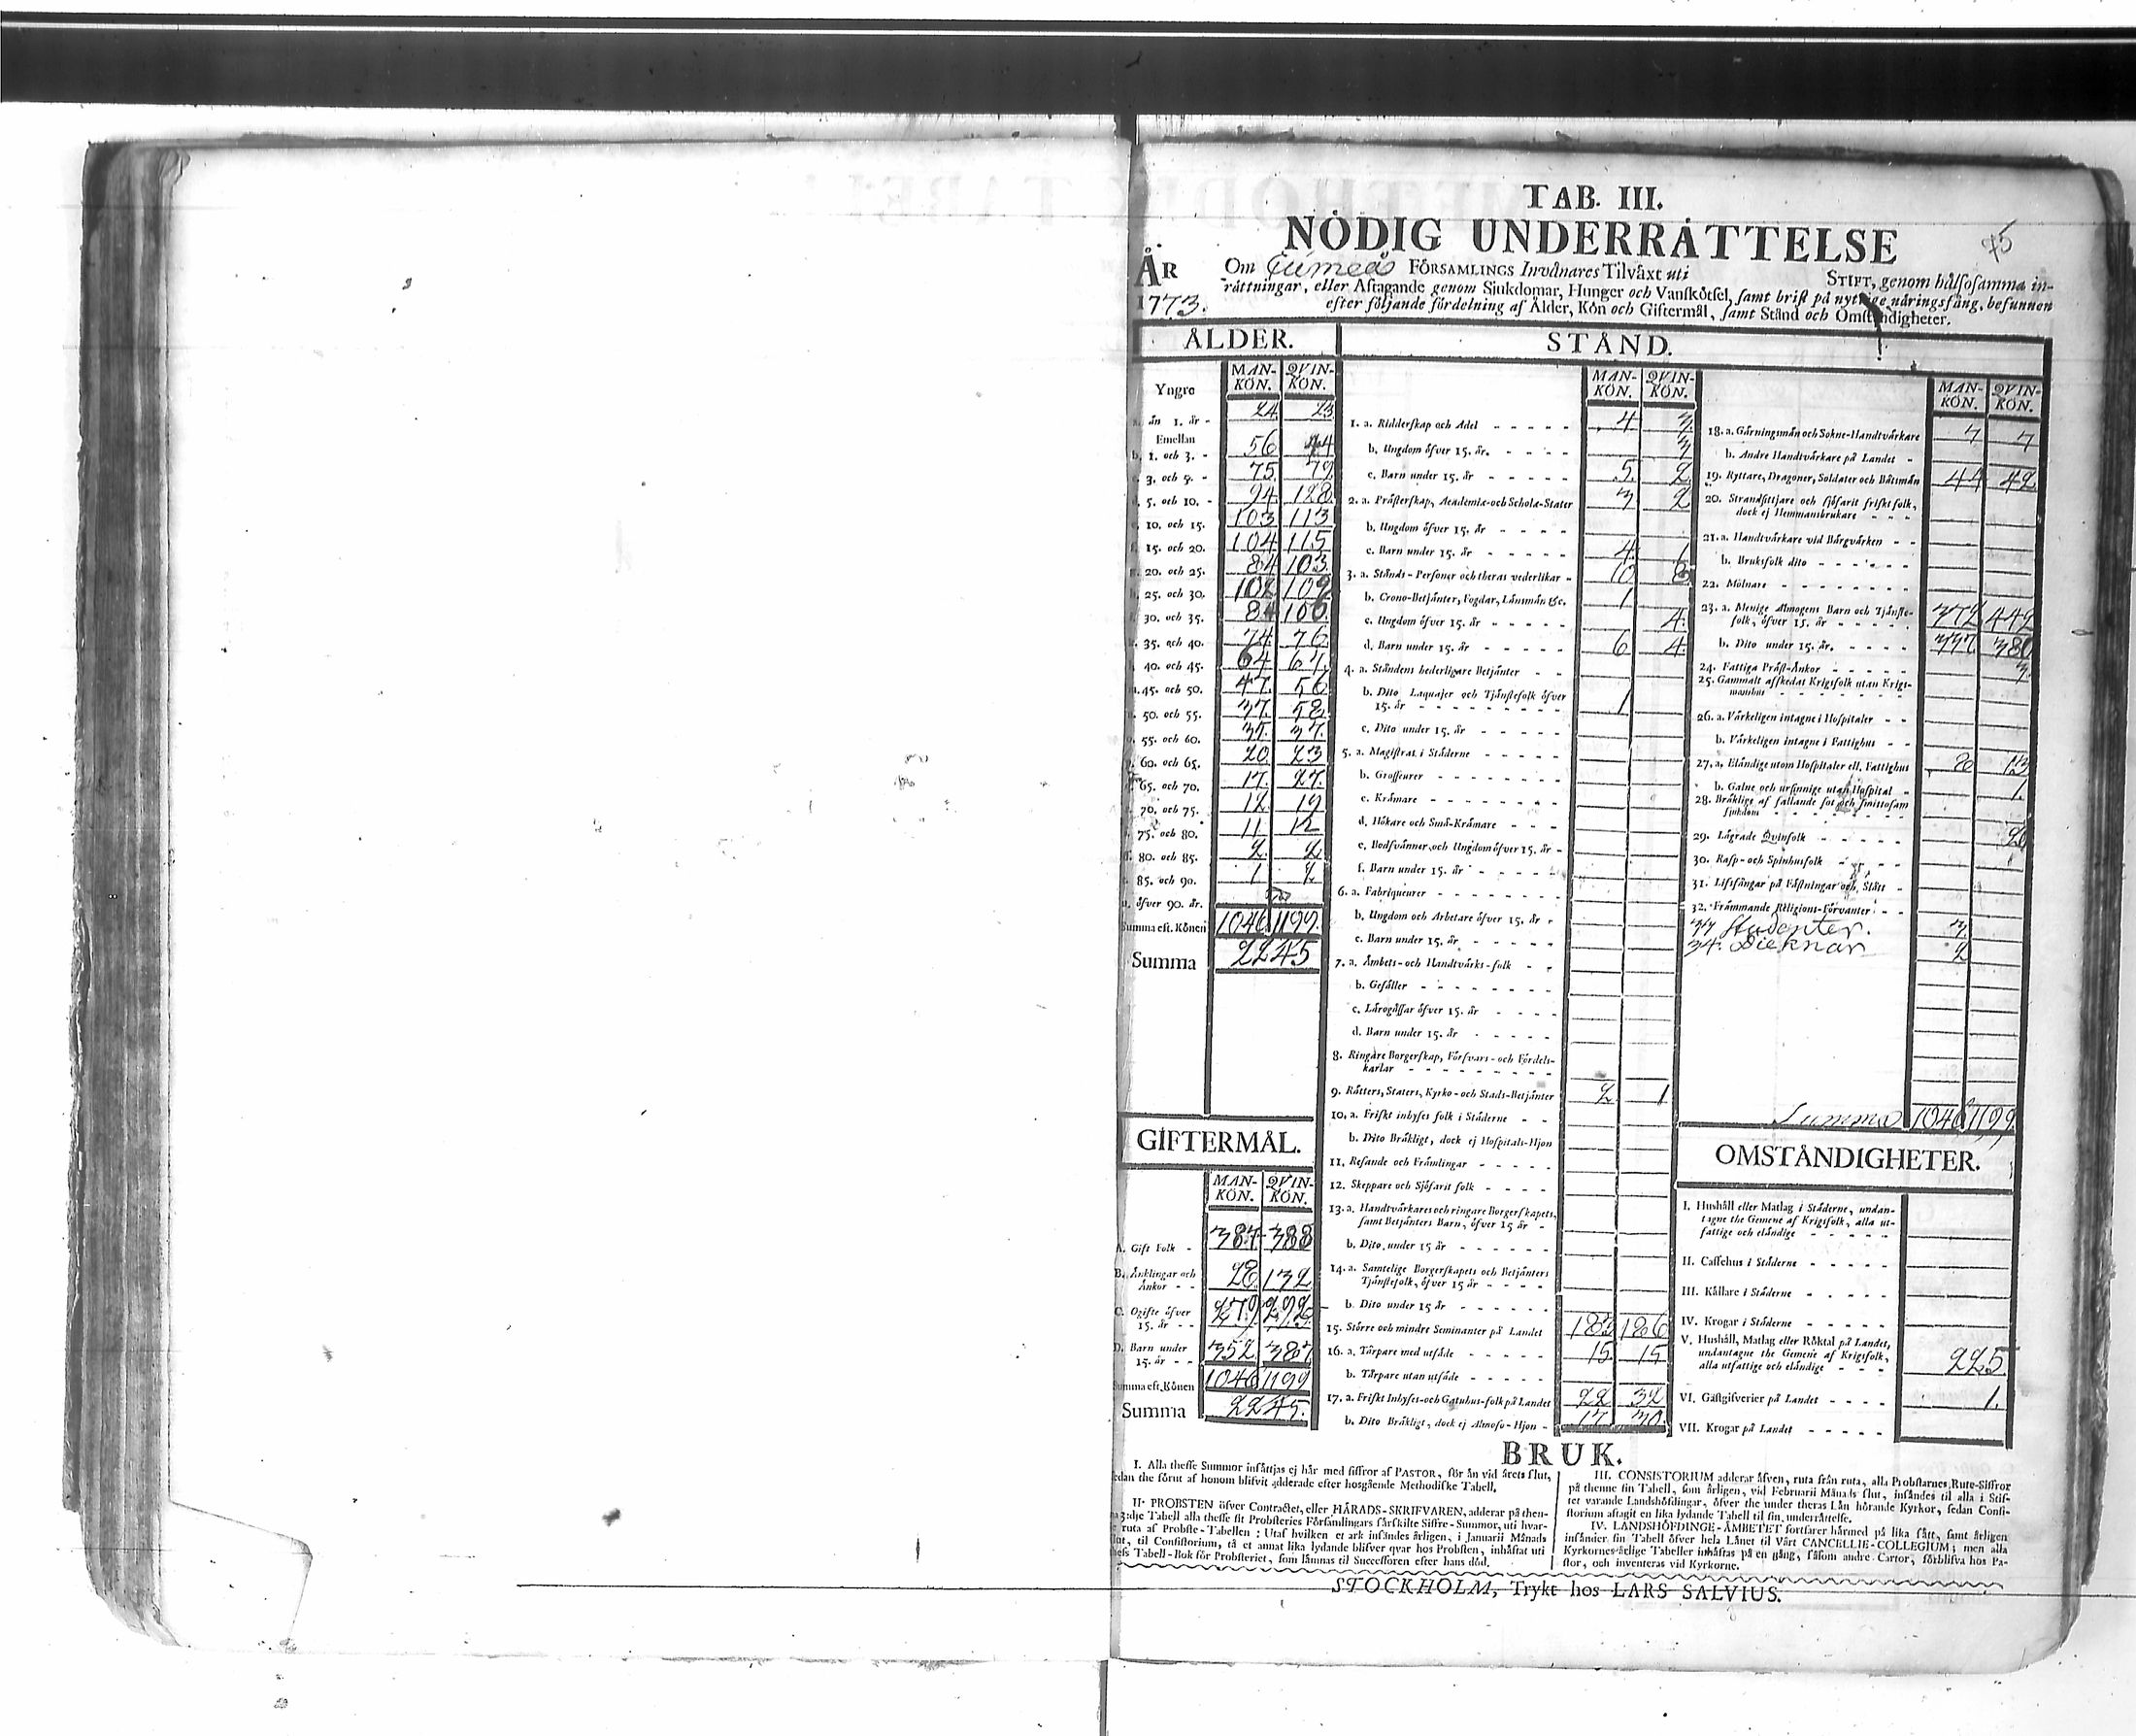 TAB. III.
NÖDIG UNDERRÅTTELSE
45
ÅR
1773.
Om Cumeås FÖRSAMLINGS Invånares Tilvåxt uti STIFT, genom hålsosamma in-
råttningar, eller Aftagande genom Sjukdomar, Hunger och Vanskötsel, samt brist på nyttige näringsfång, befunnen
efter följande fördelning af Ålder, Kön och Giftermål, samt Stånd och Omståndigheter.
ÅLDER.
MAN-KÖN. QVIN-KÖN.
Yngre
än 1. år - 24. 23.
Emellan
b. 1. och 3. - 56 44
3. och 5. - 75. 79.
5. och 10. - 94. 128.
10. och 15. 103 113
15. och 20. 104 115
20. och 25. 84 103.
25. och 30. 102 109
30. och 35. 84 100.
35. och 40. 74. 76.
40. och 45. 64 64.
45. och 50. 47. 56
50. och 55. 37. 58.
55. och 60. 37.
60. och 65. 20 23
65. och 70. 17. 27.
70. och 75. 12. 19
75. och 80. 11 12
80. och 85. 2. 2.
85. och 90. 1 2
öfver 90. år.
Summa eft. Könen 1046 1199.
Summa 2245
GIFTERMÅL.
MAN-KÖN. QVIN-KÖN.
A. Gift Folk - 387 388
B. Änklingar och
Änkor - - 28 132
C. Ogifte öfver
15. år - - 279 292
D. Barn under
15. år - - 352 387
Summa eft. Könen 1046 1199
Summa 2245.
STÅND.
MAN-KÖN. QVIN-KÖN.
1. a. Ridderskap och Adel - - - - - 4 3.
b. Ungdom öfver 15. år. - - - - 3
c. Barn under 15. år - - - - - 5. 2.
2. a. Pråsterskap, Academiæ-och Scholæ-Stater 3 2
b. Ungdom öfver 15. år - - - -
c. Barn under 15. år - - - - - 4. 1
3. a. Stånds-Personer och theras vederlikar - 10 8
b. Crono-Betjånter, Fogdar, Lånsmån &c. 1
c. Ungdom öfver 15. år - - - - - 4.
d. Barn under 15. år - - - - - 6 4.
4. a. Ståndens hederligare Betjånter - -
b. Dito Laquajer och Tjånstefolk öfver
15. år - - - - - - - - - 1
c. Dito under 15. år - - - - - -
5. a. Magistrat i Ståderne - - - - -
b. Grosseurer - - - - - - - -
c. Kråmare - - - - - - - -
d. Hökare och Små-Kråmare - - -
e. Bodsvånner, och Ungdom öfver 15. år -
f. Barn under 15. år - - - - - -
6. a. Fabriqueurer - - - - - - -
b. Ungdom och Arbetare öfver 15. år -
c. Barn under 15. år - - - - -
7. a. Åmbets-och Handtvårks-folk - -
b. Gesåller - - - - - - - -
c. Lårogåssar öfver 15. år - - - -
d. Barn under 15. år - - - -
8. Ringare Borgerskap, Försvars-och Fördels-
karlar - - - - - - - - -
9. Råtters, Staters, Kyrko-och Stads-Betjånter 2 1
10. a. Friskt inhyses folk i Ståderne - -
b. Dito Bråkligt, dock ej Hospitals-Hjon
11. Resande och Fråmlingar - - - - -
12. Skeppare och Sjöfarit folk - - - -
13. a. Handtvårkares och ringare Borgerskapets,
samt Betjånters Barn, öfver 15 år -
b. Dito, under 15 år - - - - - -
14. a. Samtelige Borgerskapets och Betjånters
Tjånstefolk, öfver 15 år - - - -
b. Dito under 15 år - - - - - -
15. Större och mindre Hemmanter på Landet 183 186
16. a. Torpare med utsåde - - - - - 15 15
b. Torpare utan utsåde - - - - -
17. a. Friskt Inhyses-och Gatuhus-folk på Landet 22 32
b. Dito Bråkligt, dock ej Almoso-Hjon - 17 30.
MAN-KÖN. QVIN-KÖN.
18. a. Gårningsmån och Sokne-Handtvårkare 7 7
b. Andre Handtvårkare på Landet -
19. Ryttare, Dragoner, Soldater och Båtsmån 44 42.
20. Strandsittjare och sjöfarit friskt folk,
dock ej Hemmansbrukare - - -
21. a. Handtvårkare vid Bårgvårken - -
b. Bruksfolk dito - - - - - -
22. Mölnare - - - - - - - -
23. a. Menige Almogens Barn och Tjånste-
folk, öfver 15. år - - - - - 372 442
b. Dito under 15. år. - - - - 337 380
24. Fattiga Pråst-Änkor - - - - - 3.
25. Gammalt afskedat Krigsfolk utan Krigs-
manshus - - - - - - - -
26. a. Vårkeligen intagne i Hospitaler - -
b. Vårkeligen intagne i Fattighus - -
27. a. Elåndige utom Hospitaler ell. Fattighus 8 13
b. Galne och ursinnige utan Hospital - 1.
28. Bråklige af fallande sot och smittosam
sjukdom - - - - - - - -
29. Lågrade Qvinfolk - - - - - 20
30. Rasp-och Spinhusfolk - - - -
31. Lifsfångar på Fåstningar och, Slått -
32. Fråmmande Religions-förvanter - -
33 Studenter. 3.
34. Dieknar 2
Summa 1046 1199
OMSTÅNDIGHETER.
I. Hushåll eller Matlag i Ståderne, undan-
tagne the Gemene af Krigsfolk, alla ut-
fattige och elåndige - - - - -
II. Caffehus i Ståderne - - - - -
III. Kållare i Ståderne - - - - -
IV. Krogar i Ståderne - - - - -
V. Hushåll, Matlag eller Röktal på Landet,
undantagne the Gemene af Krigsfolk,
alla utfattige och elåndige - - - 225.
VI. Gåstgifverier på Landet - - - - 1.
VII. Krogar på Landet - - - - -
BRUK.
I. Alla thesse Summor insåttjas ej hår med siffror af PASTOR, för ån vid årets slut,
sedan the förut af honom blifvit adderade efter hosgående Methodiske Tabell.
II. PROBSTEN öfver Contractet, eller HÅRADS-SKRIFVAREN, adderar på then-
na 3:dje Tabell alla thesse sit Probsteries Församlingars sårskilte Siffre-Summor, uti hvar-
je ruta af Probste-Tabellen: Utaf hvilken et ark insåndes årligen, i Januarii Månads
slut, til Consistorium, tå et annat lika lydande blifver qvar hos Probsten, inhåftat uti
thess Tabell-Bok för Probsteriet, som låmnas til Successoren efter hans död.
III. CONSISTORIUM adderar åfven, ruta från ruta, alla Probstarnes Rute-Siffror
på thenne sin Tabell, som årligen, vid Februarii Månads slut, insåndes til alla i Stif-
tet varande Landshöfdingar, öfver the under theras Lån hörande Kyrkor, sedan Consi-
storium aftagit en lika lydande Tabell til sin underråttelse.
IV. LANDSHÖFDINGE-ÅMBETET fortfarer hårmed på lika sått, samt årligen
insånder sin Tabell öfver hela Lånet til Vårt CANCELLIE-COLLEGIUM; men alla
Kyrkornes årlige Tabeller inhåftas på en gång, såsom andre Cartor, förblifva hos Pa-
stor, och inventeras vid Kyrkorne.
STOCKHOLM, Trykt hos LARS SALVIUS.